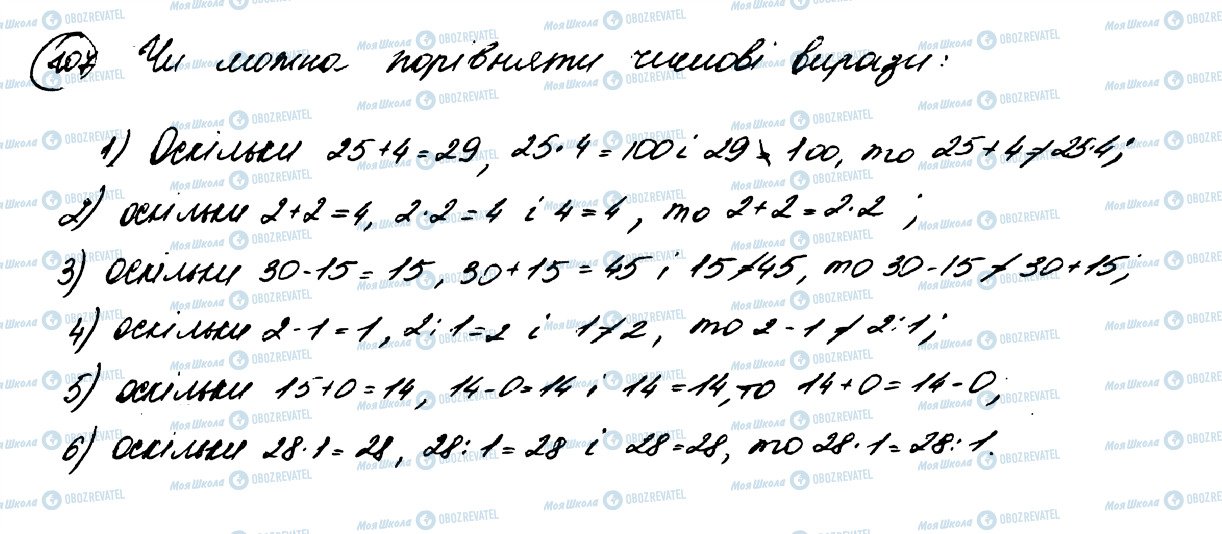 107 Чи можна порівняти числові вирази:
1) Оскільки 25+4=29, 25·4=100 і 29≠100, то 25+4≠25·4;
2) оскільки 2+2=4, 2·2=4 і 4=4, то 2+2=2·2;
3) оскільки 30-15=15, 30+15=45 і 15≠45, то 30-15≠30+15;
4) оскільки 2-1=1, 2:1=2 і 1≠2, то 2-1≠2:1;
5) оскільки 15+0=14, 14-0=14 і 14=14, то 14+0=14-0;
6) оскільки 28·1=28, 28:1=28 і 28=28, то 28·1=28:1.